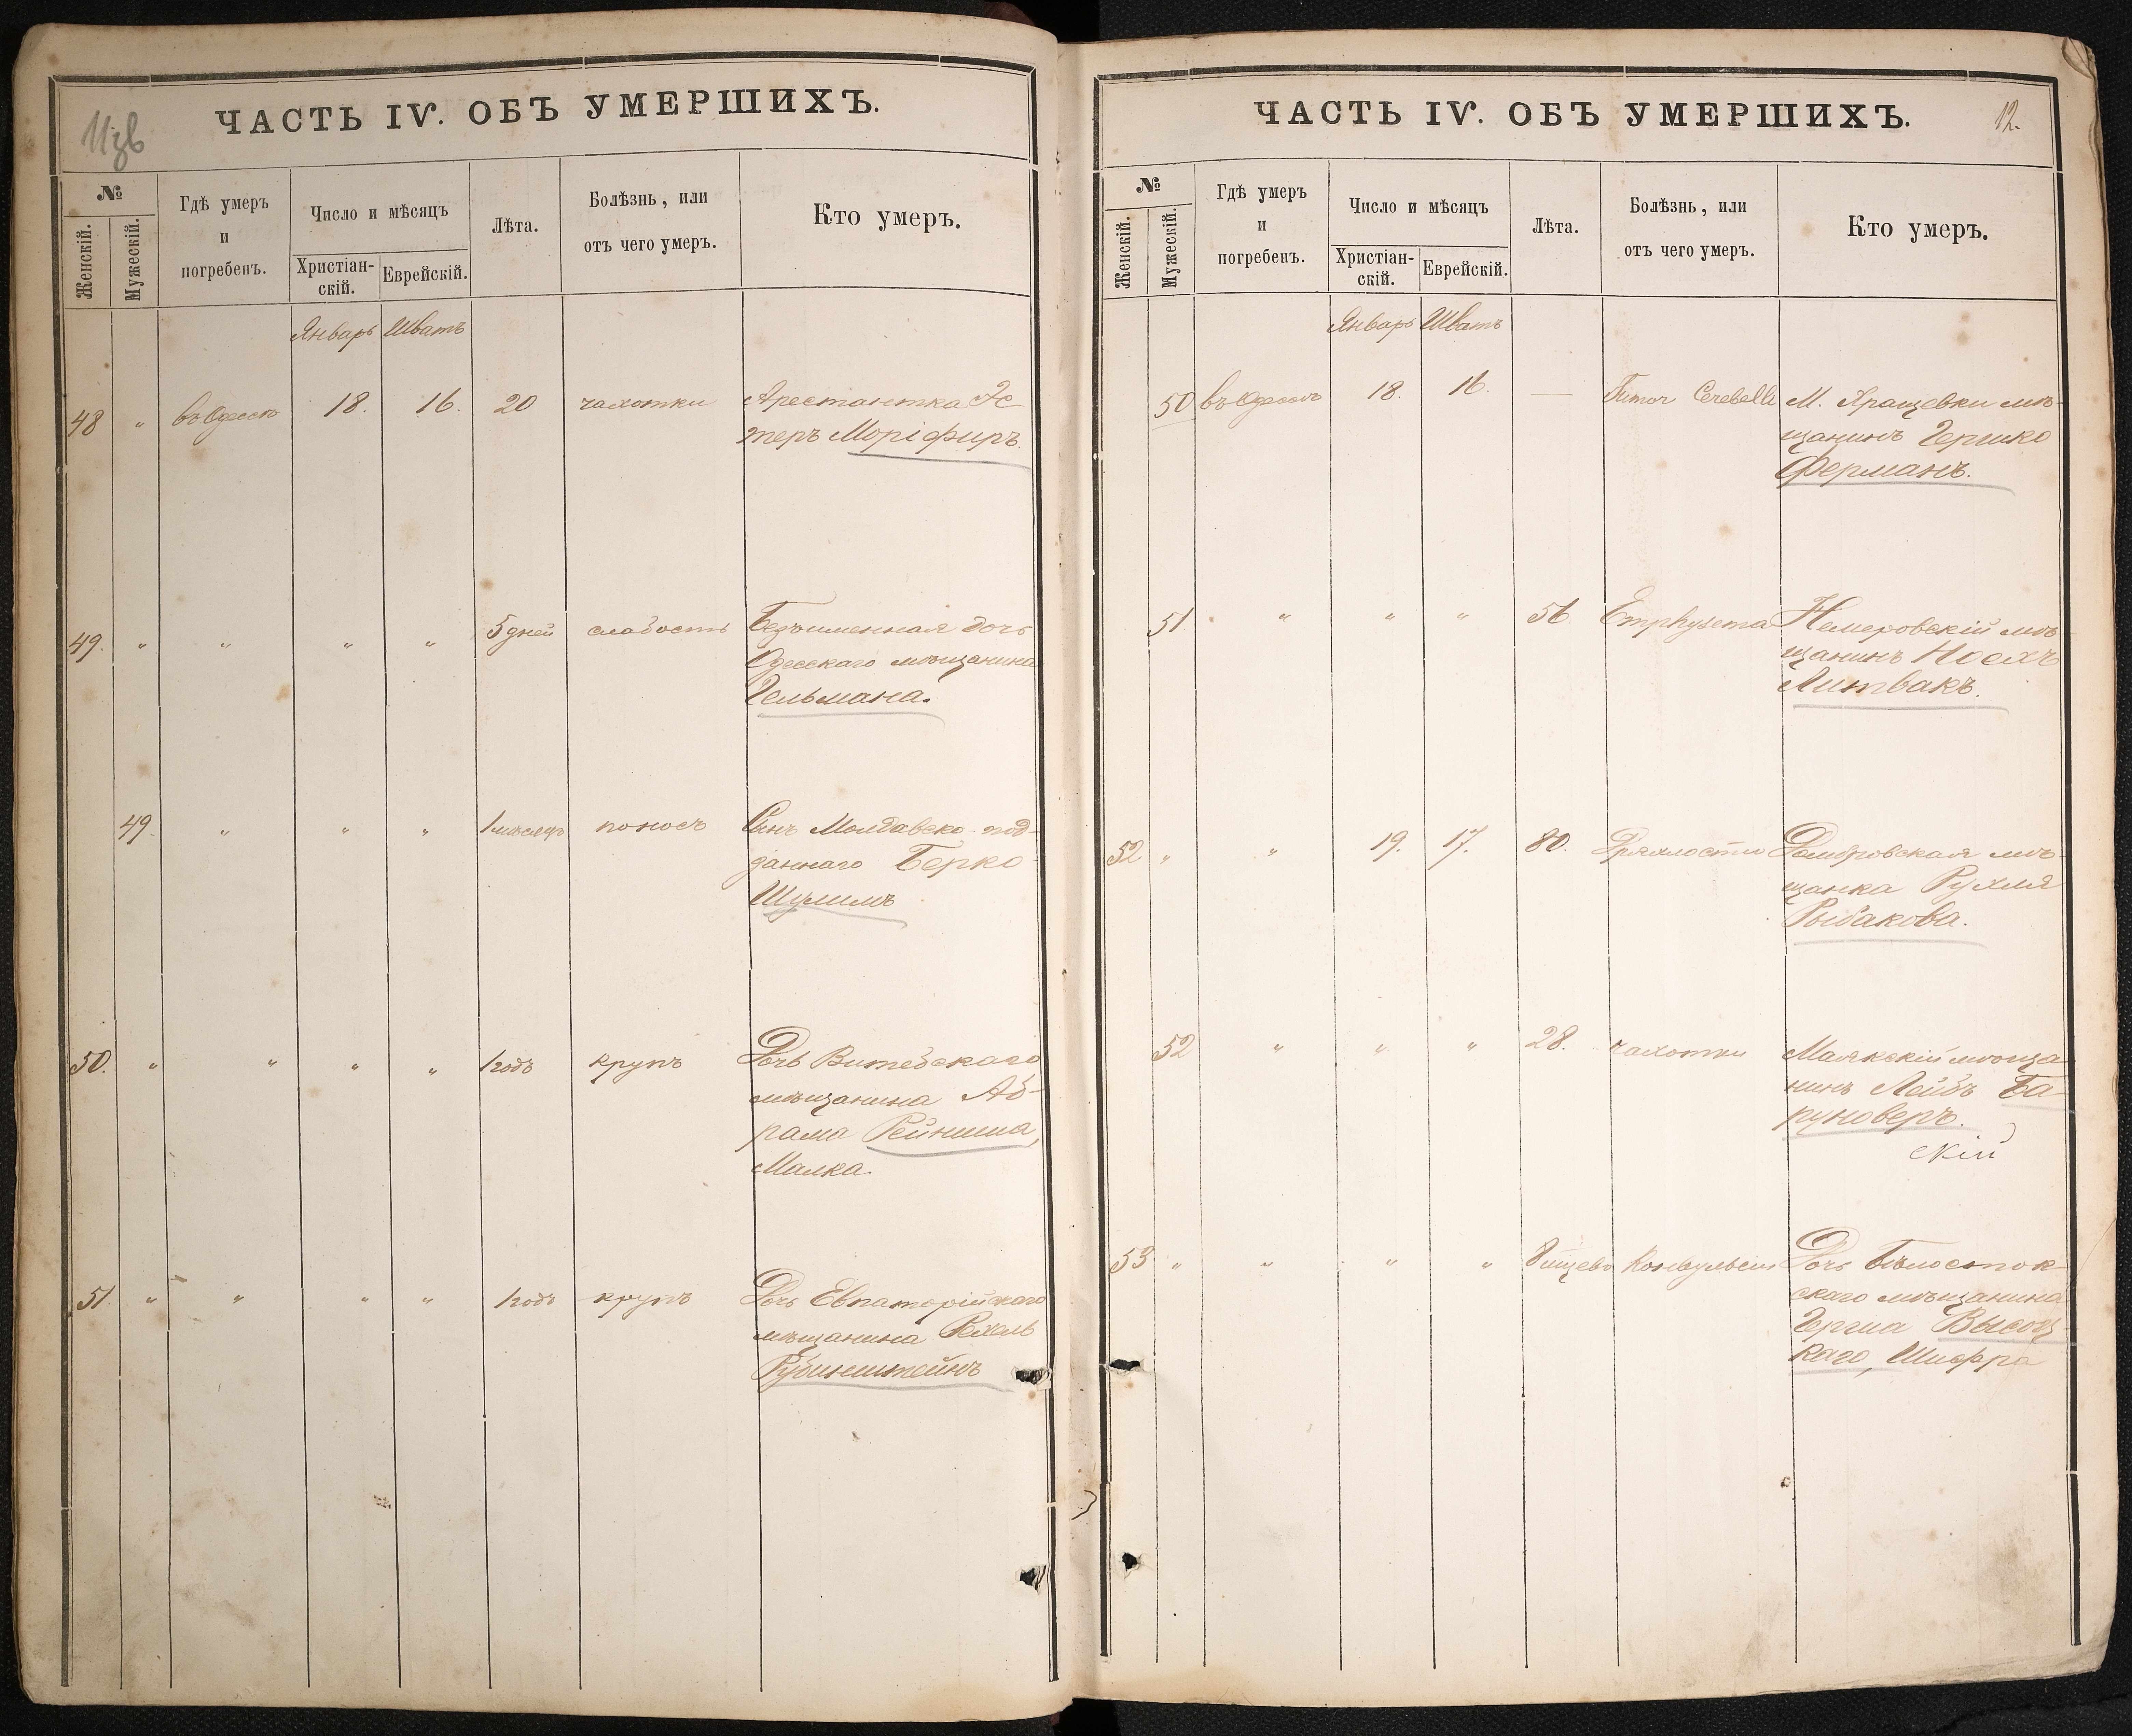 11зв
ЧАСТЬ IV. ОБЪ УМЕРШИХЪ.
№
Женскій.
Мужескій.
Гдѣ умеръ
и
погребенъ.
Число и мѣсяцъ
Христіан-
скій.
Еврейскій.
Лѣта.
Болѣзнь, или
отъ чего умеръ.
Кто умеръ.
Январь Шватъ
48 " въ Одессѣ 18. 16. 20 чахотки Арестантка Эс
теръ Моріфиръ.
49. " " " " 5 дней слабость Безъименная дочь
Одесскаго мѣщанина
Гельмана.
49. " " " 1 мѣсяцъ поносъ Сынъ Молдавско-под-
даннаго Берко
Шулимъ
50. " " " " 1 годъ крупъ Дочь Витебскаго
мѣщанина Аб-
рама Рейниша,
Малка.
51 " " " " 1 годъ крупъ Дочь Евпаторійскаго
мѣщанина Рехель
Рубинштейнъ
ЧАСТЬ IV. ОБЪ УМЕРШИХЪ.
12.
№
Женскій.
Мужескій.
Гдѣ умеръ
и
погребенъ.
Число и мѣсяцъ
Христіан-
скій.
Еврейскій.
Лѣта.
Болѣзнь, или
отъ чего умеръ.
Кто умеръ.
Январь Шватъ
50 въ Одессѣ 18. 16. — Tumor Cerebelli М. Ярашевки мѣ-
щанинъ Гершко
Ферманъ.
51 " " " " 56 Emphysema Немеровскій мѣ-
щанинъ Носехъ
Литвакъ.
52 " " 19. 17. 80. Дряхлости Домбровская мѣ-
щанка Рухля
Рыбакова.
52 " " " 28. чахотки Маякскій мѣща-
нинъ Лейбъ Ба-
руноверъ.
скій
53 " " " " Конвульсіи Дочь Бѣлосток-
скаго мѣщанина
Герша Высоц-
каго, Шифра